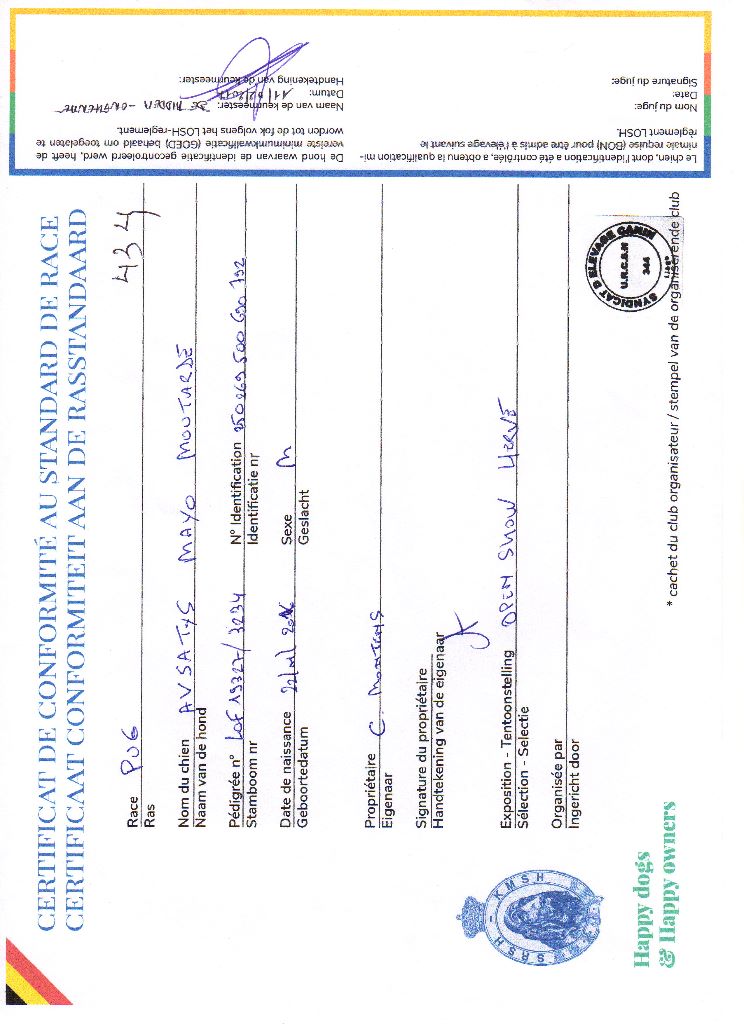 CERTIFICAT DE CONFORMITÉ AU STANDARD DE RACE
CERTIFICAAT CONFORMITEIT AAN DE RASSTANDAARD
434
Race PUG
Ras
Nom du chien AVSATYS MAYO MOUTARDE
Naam van de hond
Pédigrée n° LOF 19327/3234 N° Identification 250 269 500 690 792
Stamboom nr Identificatie nr
Date de naissance Sexe M
Geboortedatum Geslacht
Propriétaire C.
Eigenaar
Signature du propriétaire
Handtekening van de eigenaar
Exposition - Tentoonstelling OPEN SHOW HERVE
Sélection - Selectie
Organisée par
Ingericht door
* cachet du club organisateur / stempel van de organiserende club
SYNDICAT D ELEVAGE CANIN
U.R.C.S.H
344
S R S H - K M S H
Happy dogs
& Happy owners
Le chien, dont l'identification a été contrôlée, a obtenu la qualification mi-
nimale requise (BON) pour être admis à l'élevage suivant le
règlement LOSH.
Nom du juge:
Date:
Signature du juge:
De hond waarvan de identificatie gecontroleerd werd, heeft de
vereiste minimumkwalificatie (GOED) behaald om toegelaten te
worden tot de fok volgens het LOSH-reglement.
Naam van de keurmeester: DE RIDDER -
Datum: 11/02/2017
Handtekening van de keurmeester: